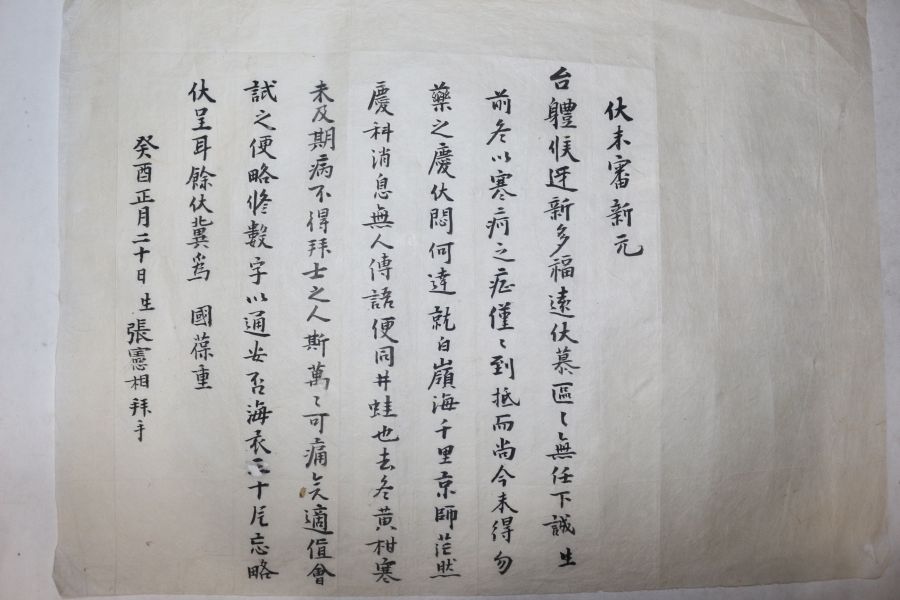 伏未審新元
台體候迓新多福遠伏慕區〻無任下誠生
前冬以寒疴之症僅〻到抵而尚今未得勿
藥之慶伏悶何達就白嶺海千里京師茫然
慶科消息無人傳語便同井蛙也去冬黃柑寒
未及期病不得拜士之人斯萬〻可痛矣適值會
試之便略修數字以通安否海衣三十尺忘略
伏呈耳餘伏冀爲 國葆重
癸酉正月二十日生張憲相拜手